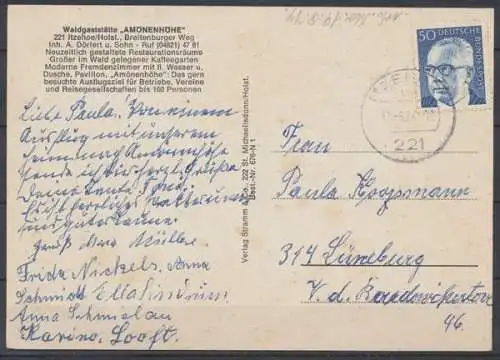 Waldgaststätte „AMÖNENHÖHE"
221 Itzehoe/Holst., Breitenburger Weg
Inh. A. Dörfert u. Sohn - Ruf (04821) 47 81
Neuzeitlich gestaltete Restaurationsräume
Großer im Wald gelegener Kaffeegarten
Moderne Fremdenzimmer mit fl. Wasser u.
Dusche. Pavillon. „Amönenhöhe": Das gern
besuchte Ausflugsziel für Betriebe, Vereine
und Reisegesellschaften bis 160 Personen
Liebe Paula! Von einem
Ausflug mit unserem
Heim nach Amönenhöhe
sende ich Dir herzliche Grüße
Deine Tante
Müller
Frida Nickels, Anna
Schmidt
Anna Schmelau
Karine Looft.
Verlag Stramm & Co., 222 St. Michaelisdonn/Holst.
Best.-Nr. 676-N 1
50 DEUTSCHE BUNDESPOST
ITZEHOE
221
Frau
Paula Koopmann
314 Lüneburg
V. d. Bardowikertore
46.